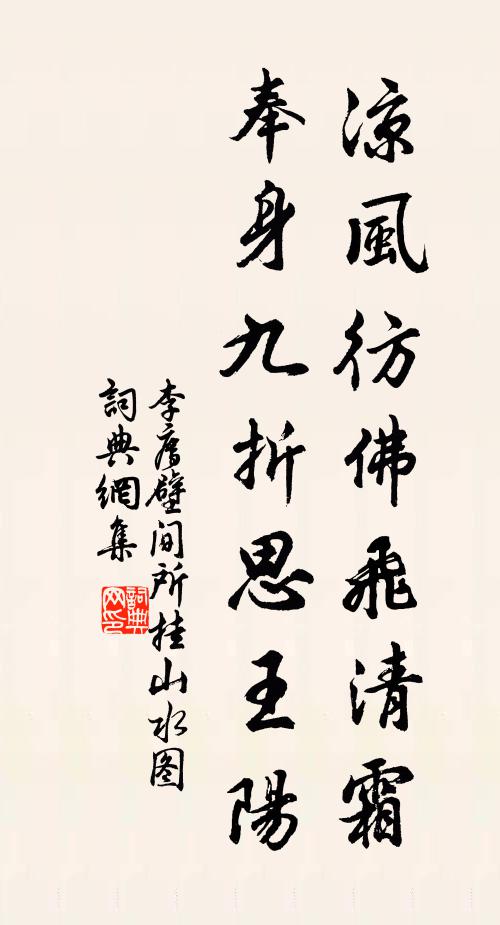 凉風彷佛飛清霜
奉身九折思王陽
李唐壁间所挂山水图
詞典網集
詞典网印